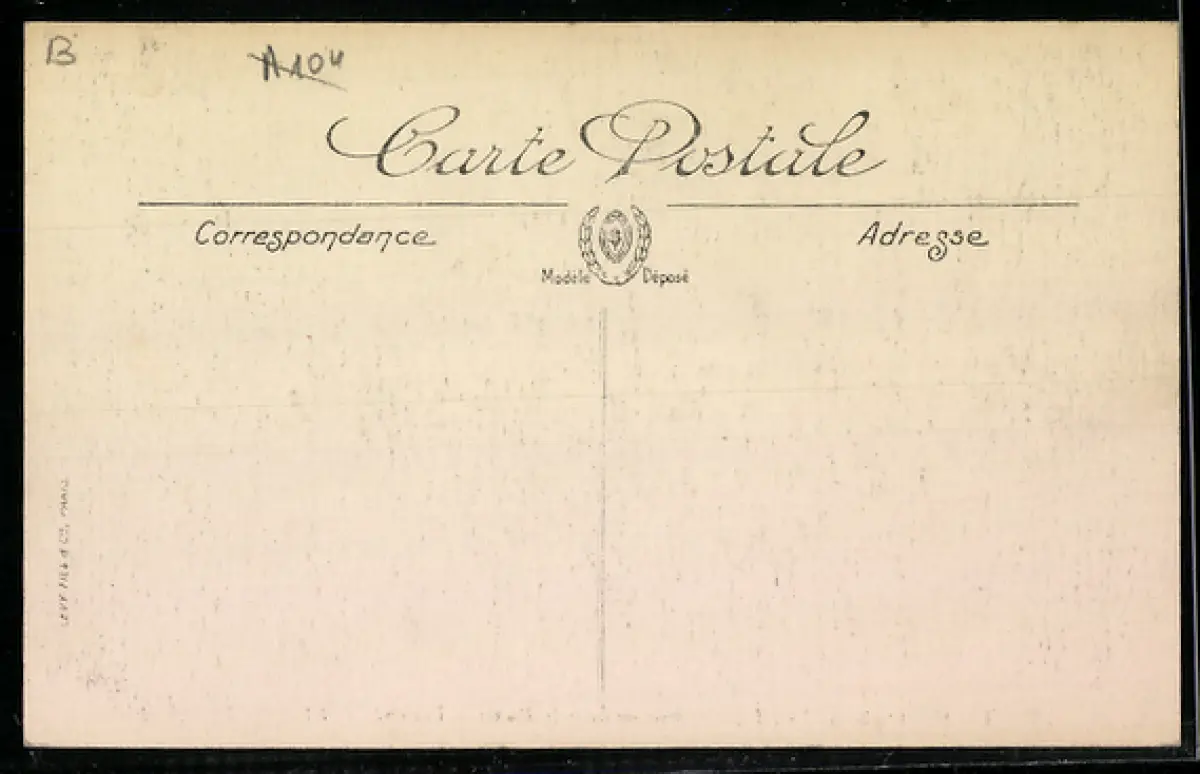 B
A104
Carte Postale
Correspondance
Adresse
Modèle Déposé
LEVY FILS & Cie, PARIS